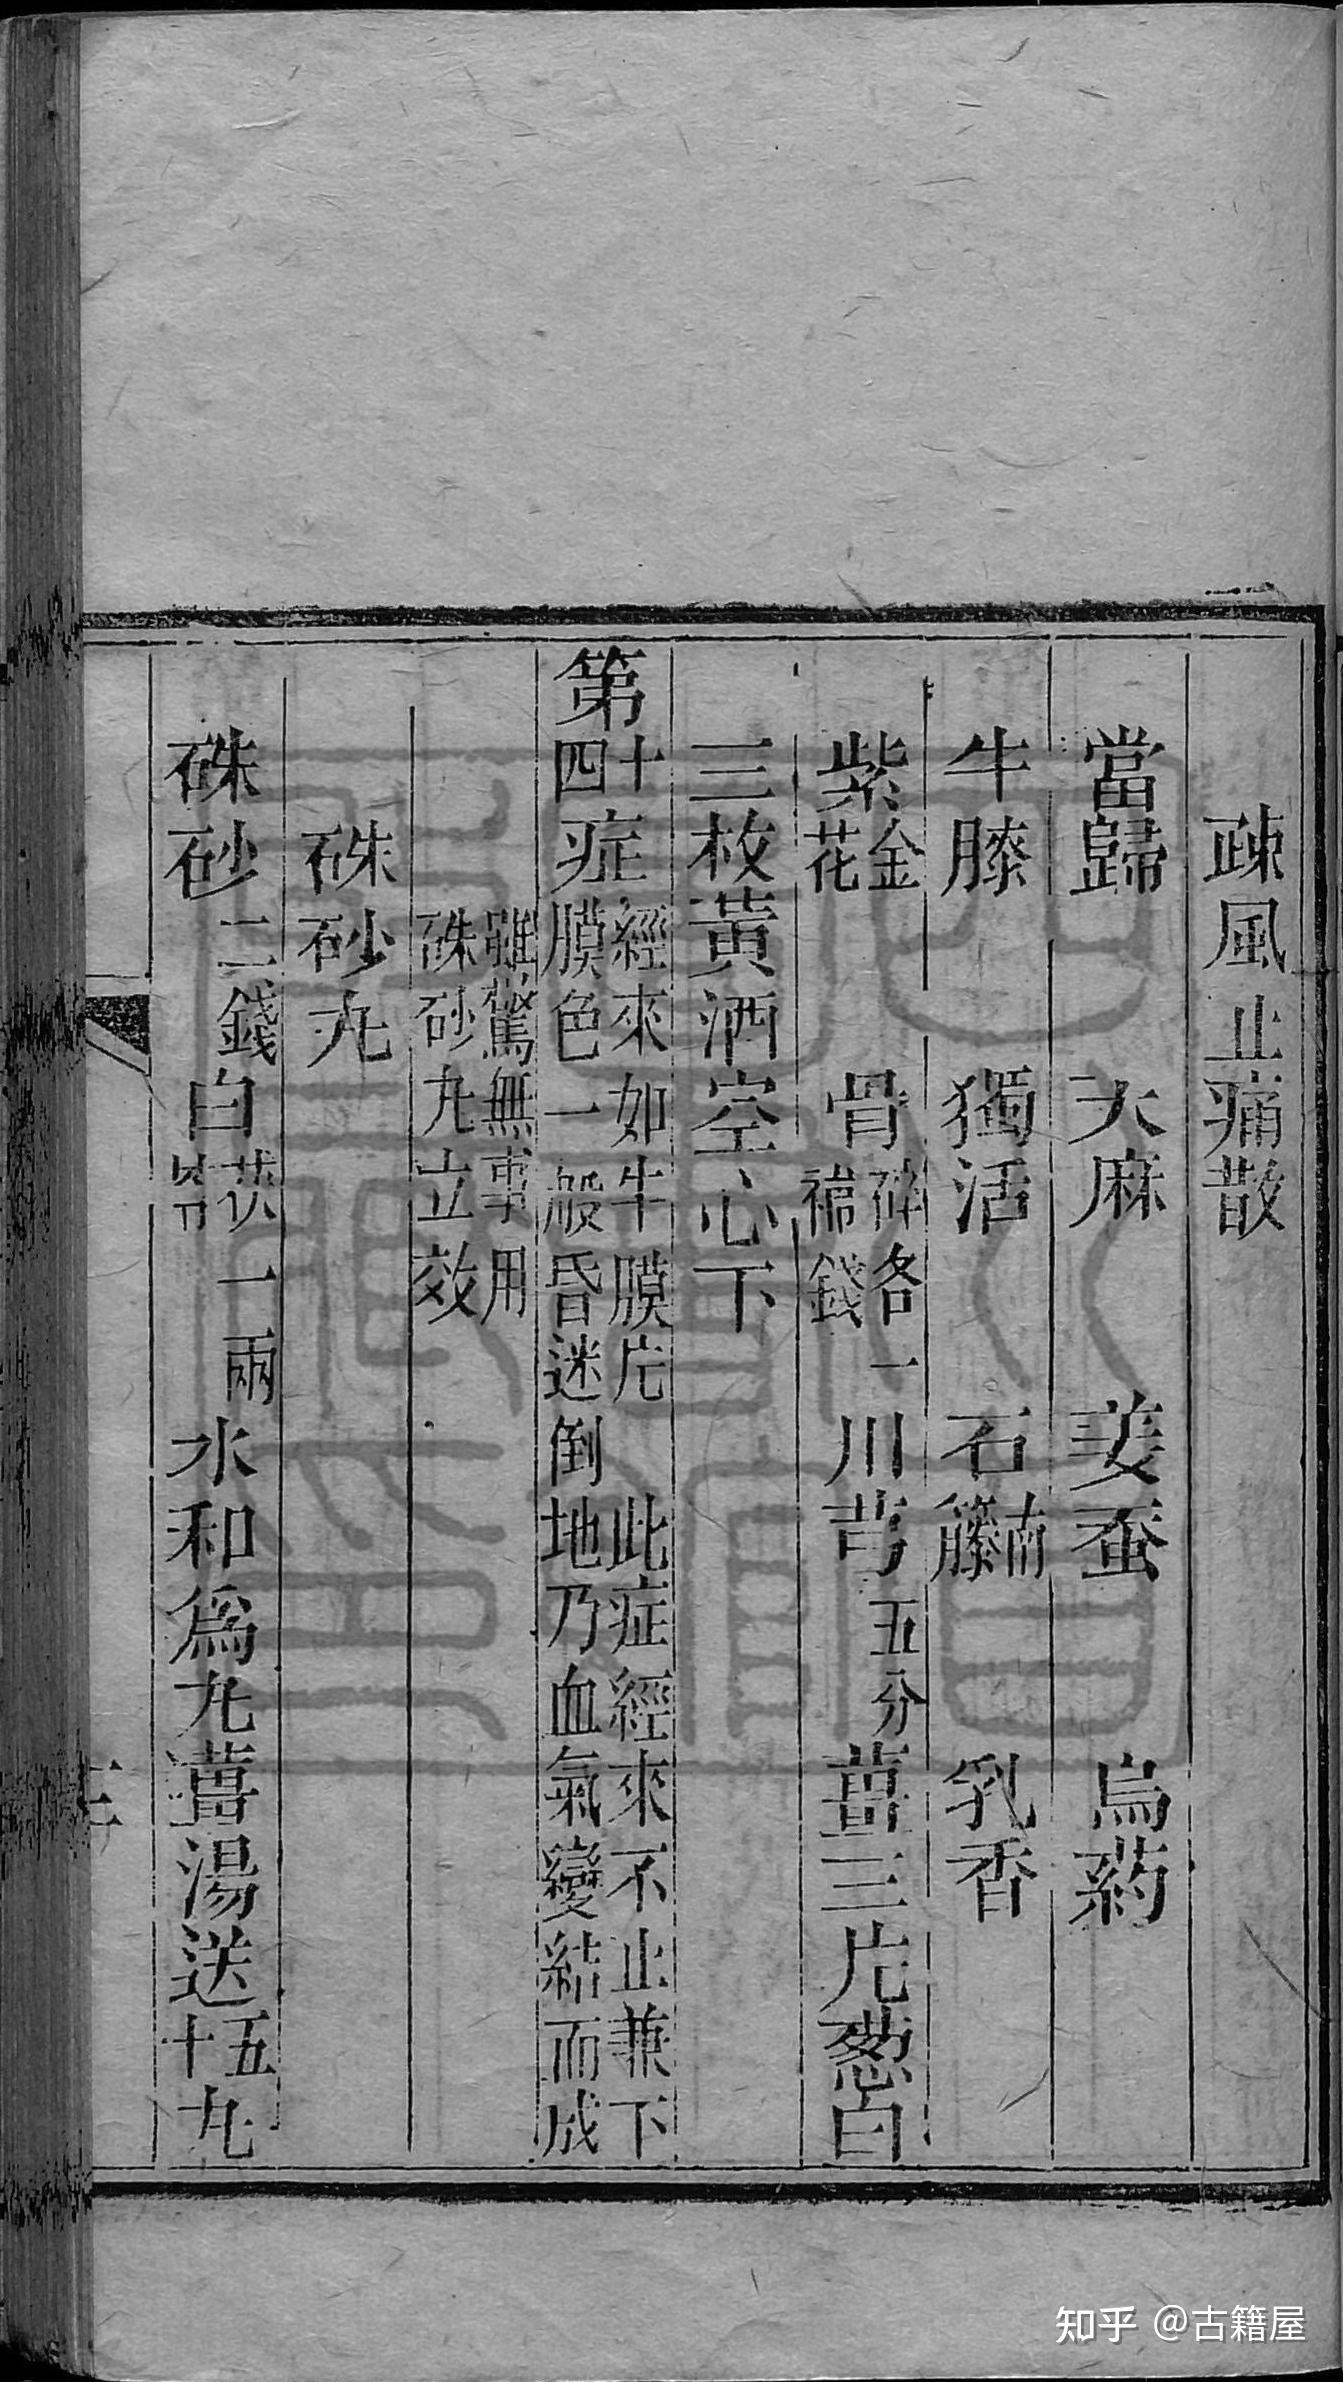 疎風止痛散
當歸 天麻 姜蚕 烏葯
牛膝 獨活 石南籐 乳香
紫金花 骨碎補各一錢 川芎五分 薑三片葱白
三枚黃洒空心下
第十四症經來如牛膜片 此症經來不止兼下
膜色一般昏迷倒地乃血氣變結而成
雖驚無事用
硃砂九立效
硃砂九
硃砂二錢白茯苓一兩水和為九薑湯送五十九
三
知乎 @古籍屋